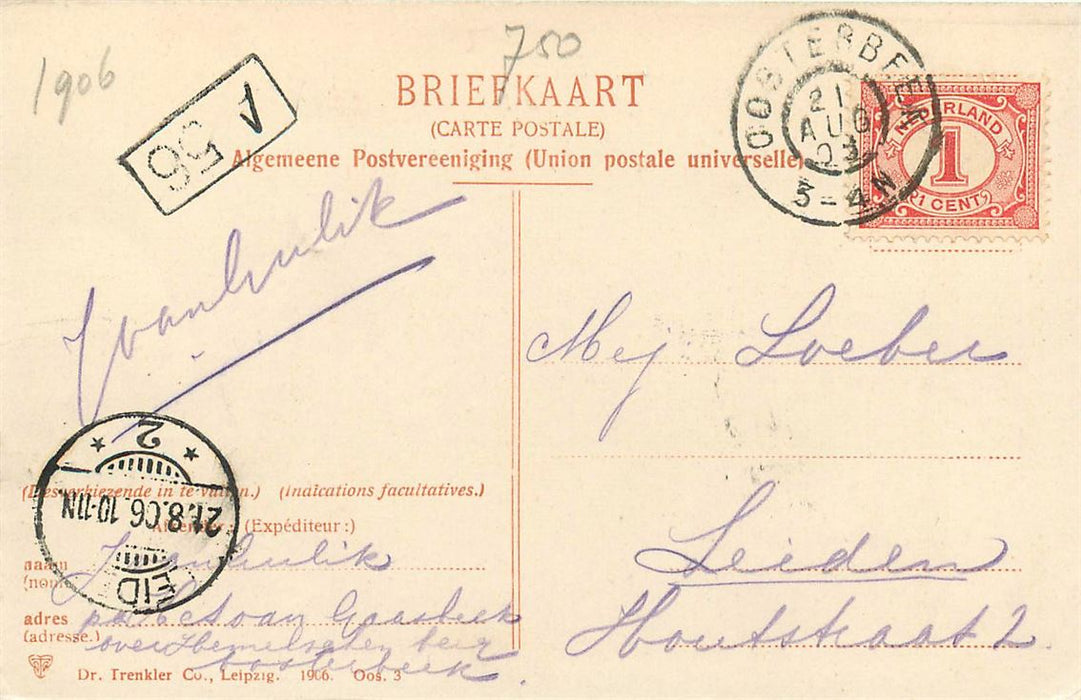 1906
750
A 56
BRIEFKAART
(CARTE POSTALE)
Algemeene Postvereeniging (Union postale universelle)
OOSTERBEEK
21 AUG 03
3-4N
NEDERLAND
1
1 CENT
Jvanhulik
Mej Loeber
Leiden
Houtstraat 2
2
21.8.06.10-11N
LEID
(Desverkiezende in te vullen.) (Indications facultatives.)
Afzender: (Expéditeur:)
naam
(nom)
Jvanhulik
adres
(adresse.)
Gaasbeek
over Hemelschen berg
Oosterbeek.
Dr. Trenkler Co., Leipzig. 1906. Oos. 3